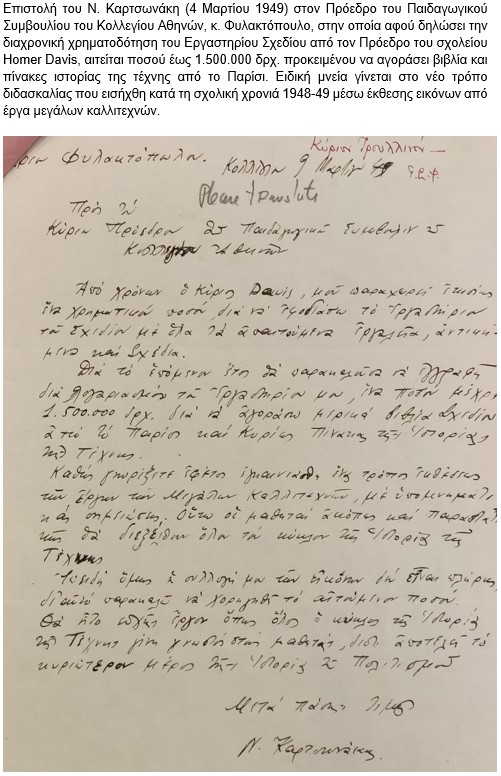 Επιστολή του Ν. Καρτσωνάκη (4 Μαρτίου 1949) στον Πρόεδρο του Παιδαγωγικού
Συμβουλίου του Κολλεγίου Αθηνών, κ. Φυλακτόπουλο, στην οποία αφού δηλώσει την
διαχρονική χρηματοδότηση του Εργαστηρίου Σχεδίου από τον Πρόεδρο του σχολείου
Homer Davis, αιτείται ποσού έως 1.500.000 δρχ. προκειμένου να αγοράσει βιβλία και
πίνακες ιστορίας της τέχνης από το Παρίσι. Ειδική μνεία γίνεται στο νέο τρόπο
διδασκαλίας που εισήχθη κατά τη σχολική χρονιά 1948-49 μέσω έκθεσης εικόνων από
έργα μεγάλων καλλιτεχνών.
Κύριον Τρουλλινόν
Φυλακτόπουλον.
Κολλέγιον 9 Μαρτίου 49
Please translate
Πρὸς τὸν
Κύριον Πρόεδρον τοῦ Παιδαγωγικοῦ Συμβουλίου τοῦ
Κολλεγίου Ἀθηνῶν
Ἀπὸ χρόνων ὁ Κύριος Davis, μοῦ παραχωρεῖ ἐτησίως
ἕνα χρηματικὸν ποσόν, διὰ νὰ ἐφοδιάσω τὸ Ἐργαστήριον
τοῦ Σχεδίου μὲ ὅλα τὰ ἀπαιτούμενα ἐργαλεῖα, ἀντικεί-
μενα καὶ Σχέδια.
Διὰ τὸ ἑπόμενον ἔτος θὰ παρακαλοῦσα νὰ ἐγγραφῇ
διὰ λογαριασμὸν τοῦ Ἐργαστηρίου μου, ἕνα ποσὸν μέχρι
1.500.000 δρχ. διὰ νὰ ἀγοράσω μερικὰ βιβλία Σχεδίου
ἀπὸ τὸ Παρίσι καὶ Κυρίως Πίνακας τῆς Ἱστορίας
τῆς Τέχνης.
Καθὼς γνωρίζετε ἐφέτος ἐγκαινιάσθη ἕνας τρόπος ἐκθέσεως
τῶν ἔργων τῶν Μεγάλων Καλλιτεχνῶν, μὲ ὑπομνηματι-
κὰς σημειώσεις. Οὕτω οἱ μαθηταὶ
θὰ διεξέλθουν ὅλον τὸν κύκλον τῆς Ἱστορίας τῆς
Τέχνης
Ἐπειδὴ ὅμως ἡ συλλογή μου τῶν εἰκόνων δὲν εἶναι πλήρης,
δι' αὐτὸ παρακαλῶ νὰ χορηγηθῇ τὸ αἰτούμενον ποσόν.
Θὰ ἦτο εὐχῆς ἔργον ὅπως ὅλος ὁ κύκλος τῆς Ἱστορίας
τῆς Τέχνης γίνῃ γνωστὸς στοὺς μαθητάς, διότι ἀποτελεῖ τὸ
κυριώτερον μέρος τῆς Ἱστορίας τοῦ Πολιτισμοῦ
Μετὰ πάσης τιμῆς
Ν. Καρτσωνάκης